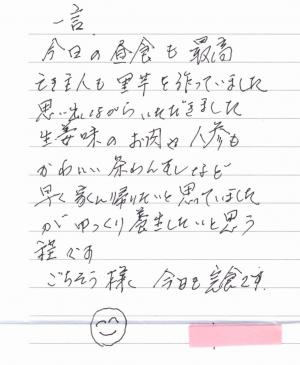 一言
今日の昼食も最高
亡き主人も里芋を作っていました
思い出しながらいただきました
生姜味のお肉や人参も
かわいい茶わんむしなど
早く家に帰りたいと思っていました
がゆっくり養生したいと思う
程です
ごちそう様 今日も完食です.